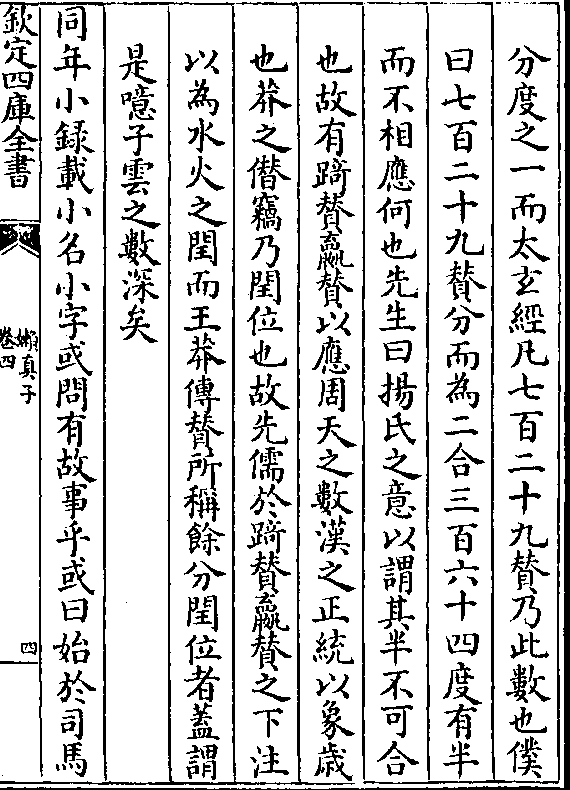 分度之一而太𤣥經凡七百二十九賛乃此數也僕
曰七百二十九賛分而為二合三百六十四度有半
而不相應何也先生曰揚氏之意以謂其半不可合
也故有踦賛嬴賛以應周天之數漢之正統以象歳
也莽之僣竊乃閏位也故先儒於踦賛嬴賛之下注
以為水火之閏而王莽傳賛所稱餘分閏位者蓋謂
是噫子雲之數深矣
同年小録載小名小字或問有故事乎或曰始於司馬
欽定四庫全書
嬾真子
卷四
四